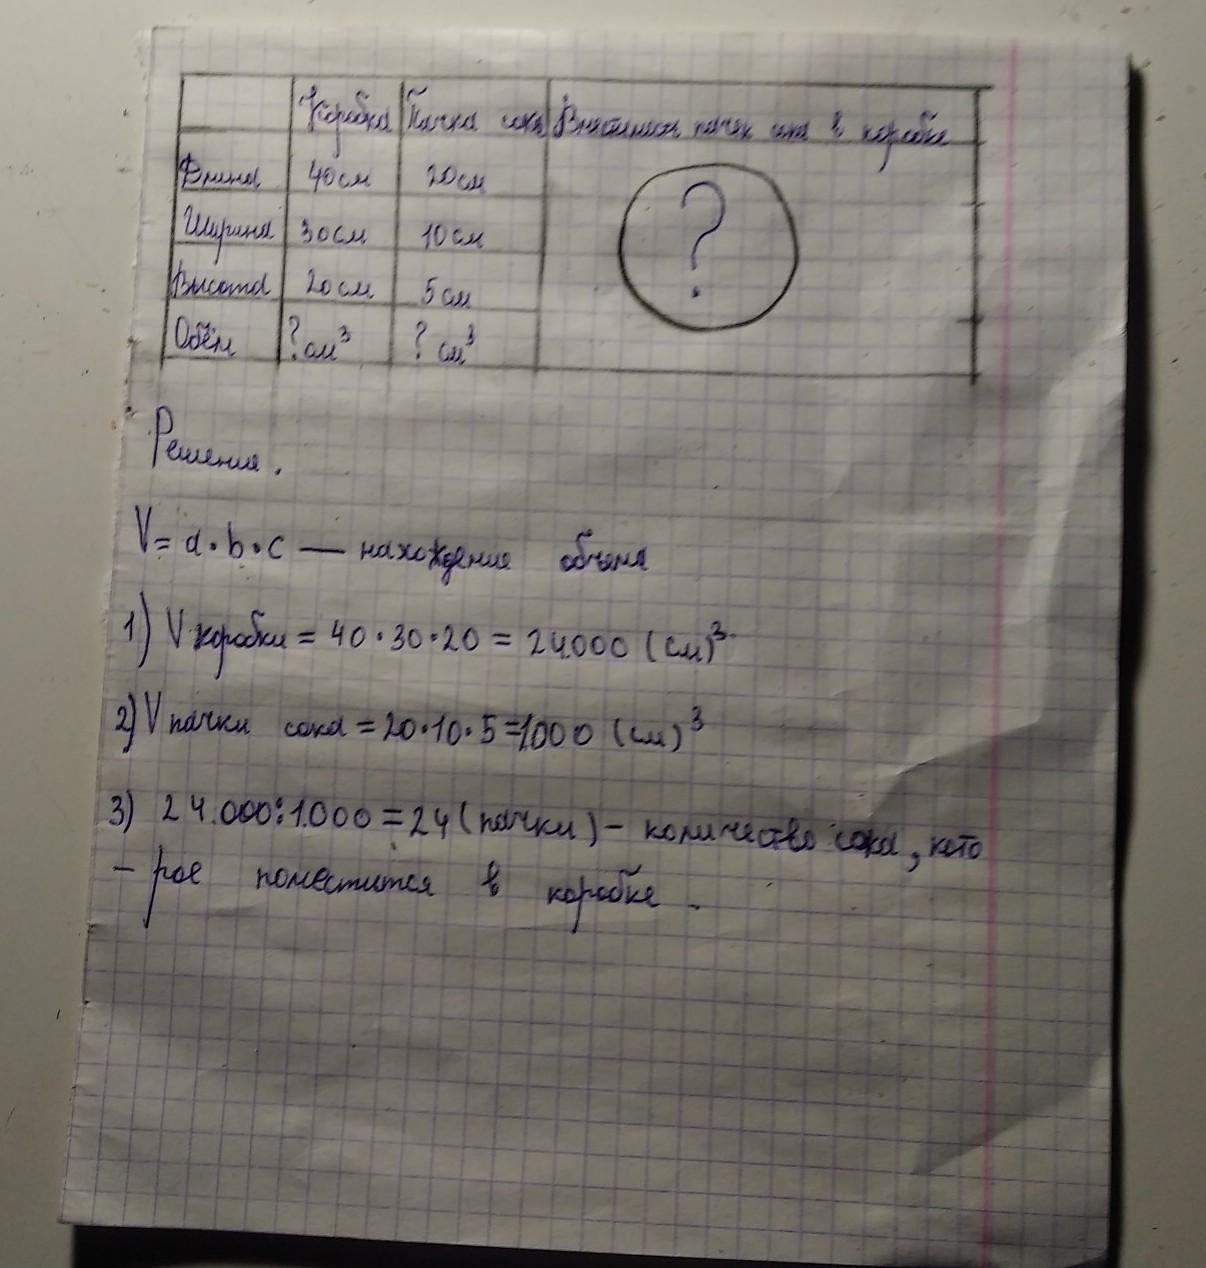 Коробка Пачка сока Вместимость пачек сока в коробке
Длина 40см 20см
Ширина 30см 10см
?
Высота 20см 5см
Объём ?см³ ? см³
Решение.
V= a·b·c — нахождение объема
1) V коробки = 40·30·20 = 24.000 (см)³
2) V пачки сока = 20·10·5=1.000 (см)³
3) 24.000:1.000 =24 (пачки) – количество сока, кото
– рое поместится в коробке.